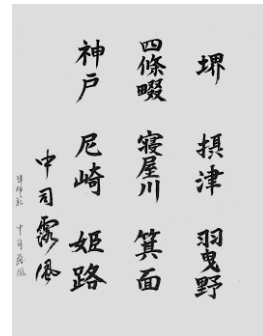 堺 摂津 羽曳野
四條畷 寝屋川 箕面
神戸 尼崎 姫路
中司露風
準師範 中司露風